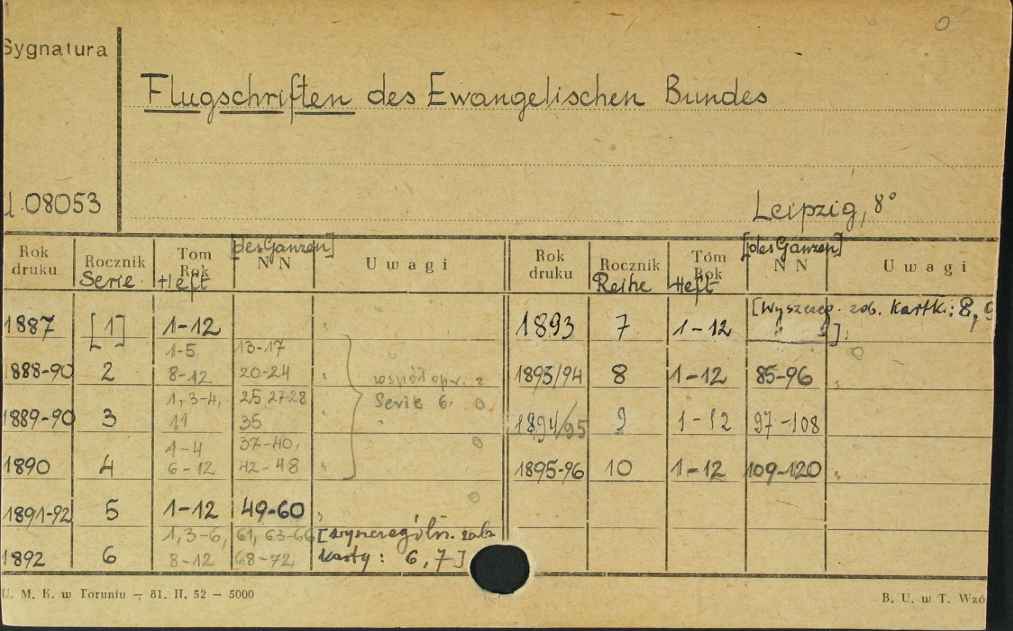 Sygnatura
Flugschriften des Ewangelischen Bundes
08053
Leipzig, 8°
Rok druku Rocznik Serie Tom Rok Heft [des Ganzen] NN Uwagi
1887 [1] 1-12
1888-90 2 1-5 8-12 13-17 20-24
1889-90 3 1, 3-4, 11 25 27-28 35
1890 4 1-4 6-12 37-40, 42-48
współopr. z Serie 6.
1891-92 5 1-12 49-60
1892 6 1, 3-6, 8-12 61, 63-66 68-72, [wyszczególn. zob. karty: 6, 7]
Rok druku Rocznik Reihe Tom Rok Heft [des Ganzen] NN Uwagi
1893 7 1-12 [Wyszczeg. zob. Kartk.: 8, 9
1893/94 8 1-12 85-96
1894/95 9 1-12 97-108
1895-96 10 1-12 109-120
U. M. K. w Toruniu – 81. II. 52 – 5000
B. U. w T. Wzó